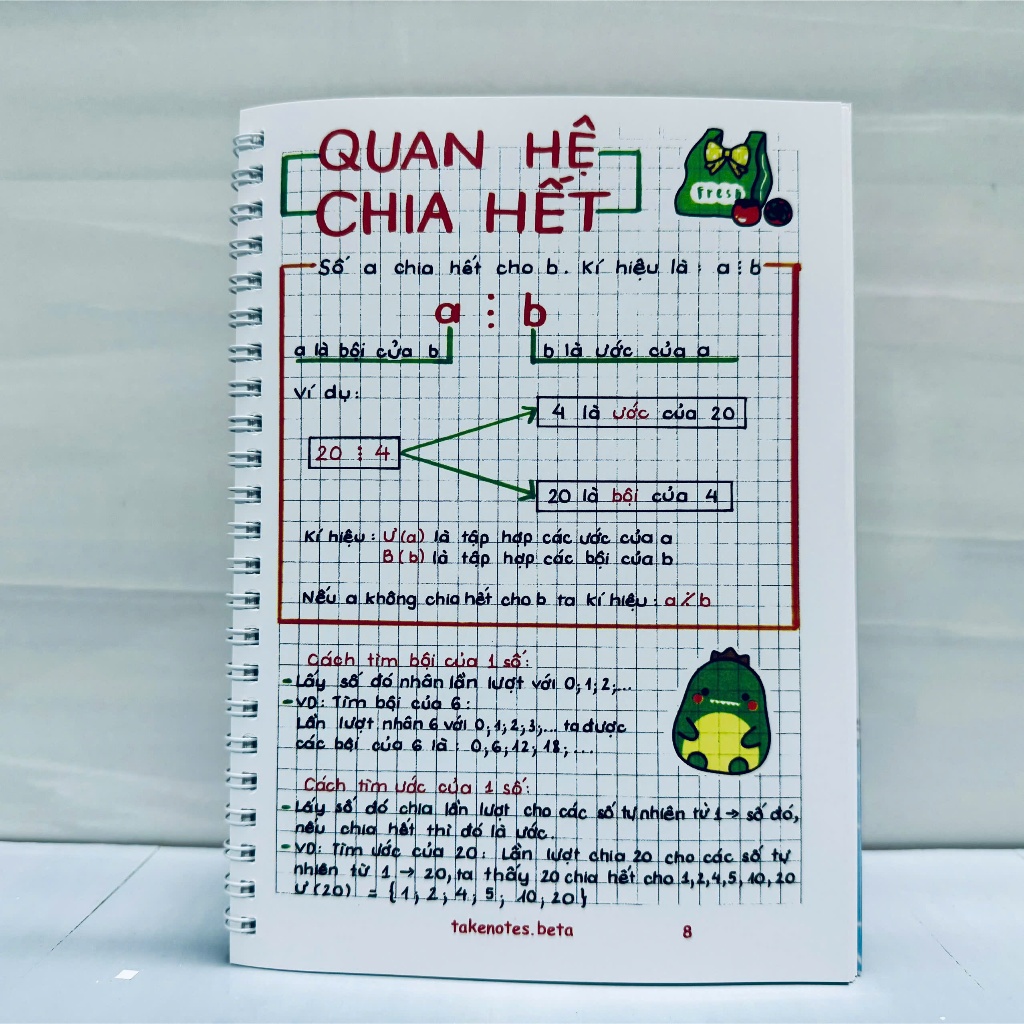 QUAN HỆ
CHIA HẾT
Fresh
Số a chia hết cho b. Kí hiệu là: a ⋮ b
a ⋮ b
a là bội của b
b là ước của a
Ví dụ:
4 là ước của 20
20 ⋮ 4
20 là bội của 4
Kí hiệu: Ư(a) là tập hợp các ước của a
B(b) là tập hợp các bội của b
Nếu a không chia hết cho b ta kí hiệu: a ⋮̸ b
Cách tìm bội của 1 số:
- Lấy số đó nhân lần lượt với 0; 1; 2;...
- VD: Tìm bội của 6:
Lần lượt nhân 6 với 0; 1; 2; 3;... ta được
các bội của 6 là: 0; 6; 12; 18; ...
Cách tìm ước của 1 số:
- Lấy số đó chia lần lượt cho các số tự nhiên từ 1 → số đó,
nếu chia hết thì đó là ước.
- VD: Tìm ước của 20: Lần lượt chia 20 cho các số tự
nhiên từ 1 → 20, ta thấy 20 chia hết cho 1,2,4,5,10,20
Ư(20) = {1; 2; 4; 5; 10; 20}
takenotes.beta 8